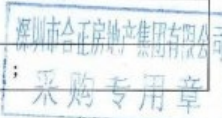 深圳市合正房地产集团有限公司
;
采购专用章